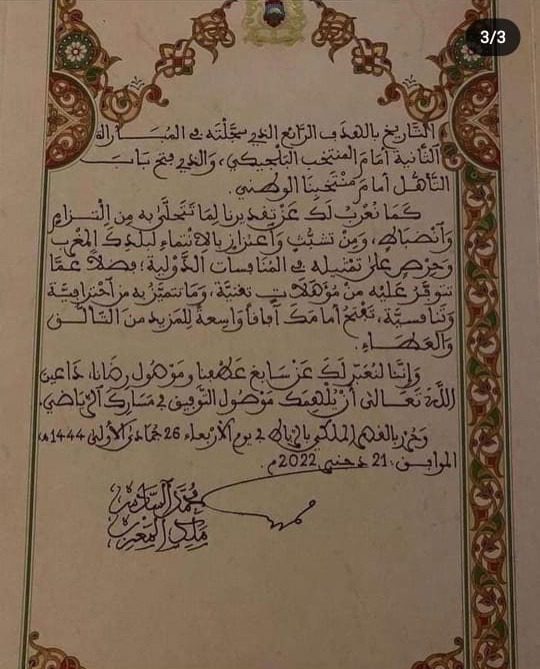 3/3
التاريخ بالهدف الرائع الذي سجلته في المباراة
الثانية أمام المنتخب البلجيكي، والذي فتح باب
التأهل أمام منتخبنا الوطني.
كما نعرب لك عن تقديرنا لما تتحلى به من التزام
وانضباط، ومن تشبث واعتزاز بالانتماء لبلدك المغرب
وحرص على تمثيله في المنافسات الدولية؛ فضلا عما
تتوفر عليه من مؤهلات تقنية، وما تتميز به من احترافية
وتنافسية، تفتح أمامك آفاقا واسعة للمزيد من التألق
والعطاء.
وإننا لنعبر لك عن سابغ عطفنا وموصول رضانا، داعين
الله تعالى أن يلهمك موصول التوفيق في مسارك الرياضي.
وحرر بالقصر الملكي بالرباط في يوم الأربعاء 26 جمادى الأولى 1444هـ
الموافق: 21 دجنبر 2022م.
محمد السادس
ملك المغرب